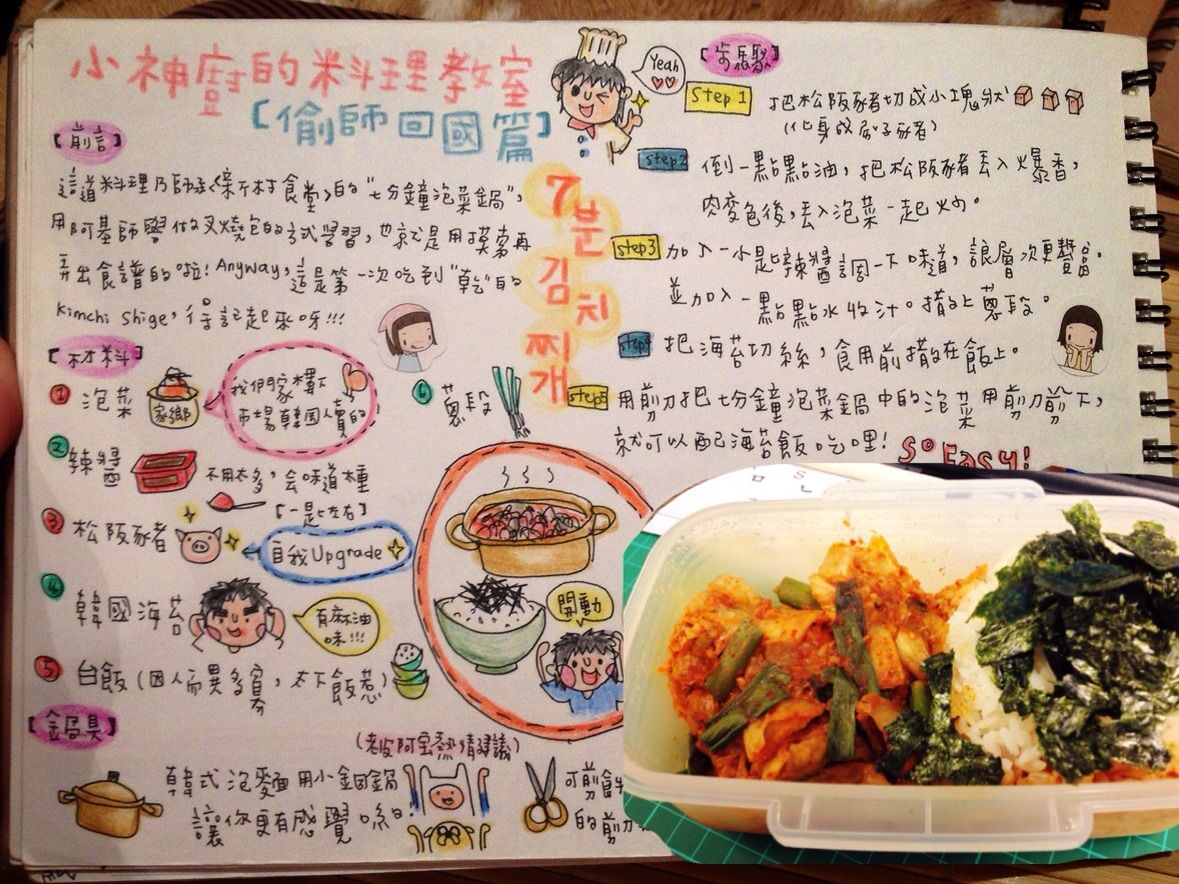 小神廚的料理教室
【偷師回國篇】
Yeah
【前言】
這道料理乃師承《深夜食堂》的"七分鐘泡菜鍋",
用阿基師學做叉燒包的方式學習,也就是用摸索再
弄出食譜的啦!Anyway,這是第一次吃到"乾"的
Kimchi shige,得記起來呀!!!
7분
김
치
찌
개
【材料】
① 泡菜
家鄉
我們家樓下
市場韓國人賣的
② 辣醬
不用太多,会味道太重
【一匙左右】
③ 松阪豬
自我Upgrade
④ 韓國海苔
有麻油
味!!!
⑤ 白飯(因人而異多寡,太下飯惹)
⑥ 蔥段
開動
【鍋具】
(老皮阿寶熱情建議)
韓式泡麵用小銅鍋
讓你更有感覺喲!
可剪
的剪刀
【步驟】
Step 1 把松阪豬切成小塊狀
(化身成骰子豬)
step2 倒一點點油,把松阪豬丟入爆香,
肉變色後,丟入泡菜一起炒。
step3 加入一小匙辣醬調一下味道,讓層次更豐富。
並加入一點點水收汁。撒上蔥段。
step4 把海苔切絲,食用前撒在飯上。
step5 用剪刀把七分鐘泡菜鍋中的泡菜用剪刀剪下,
就可以配海苔飯吃哩! So Easy!